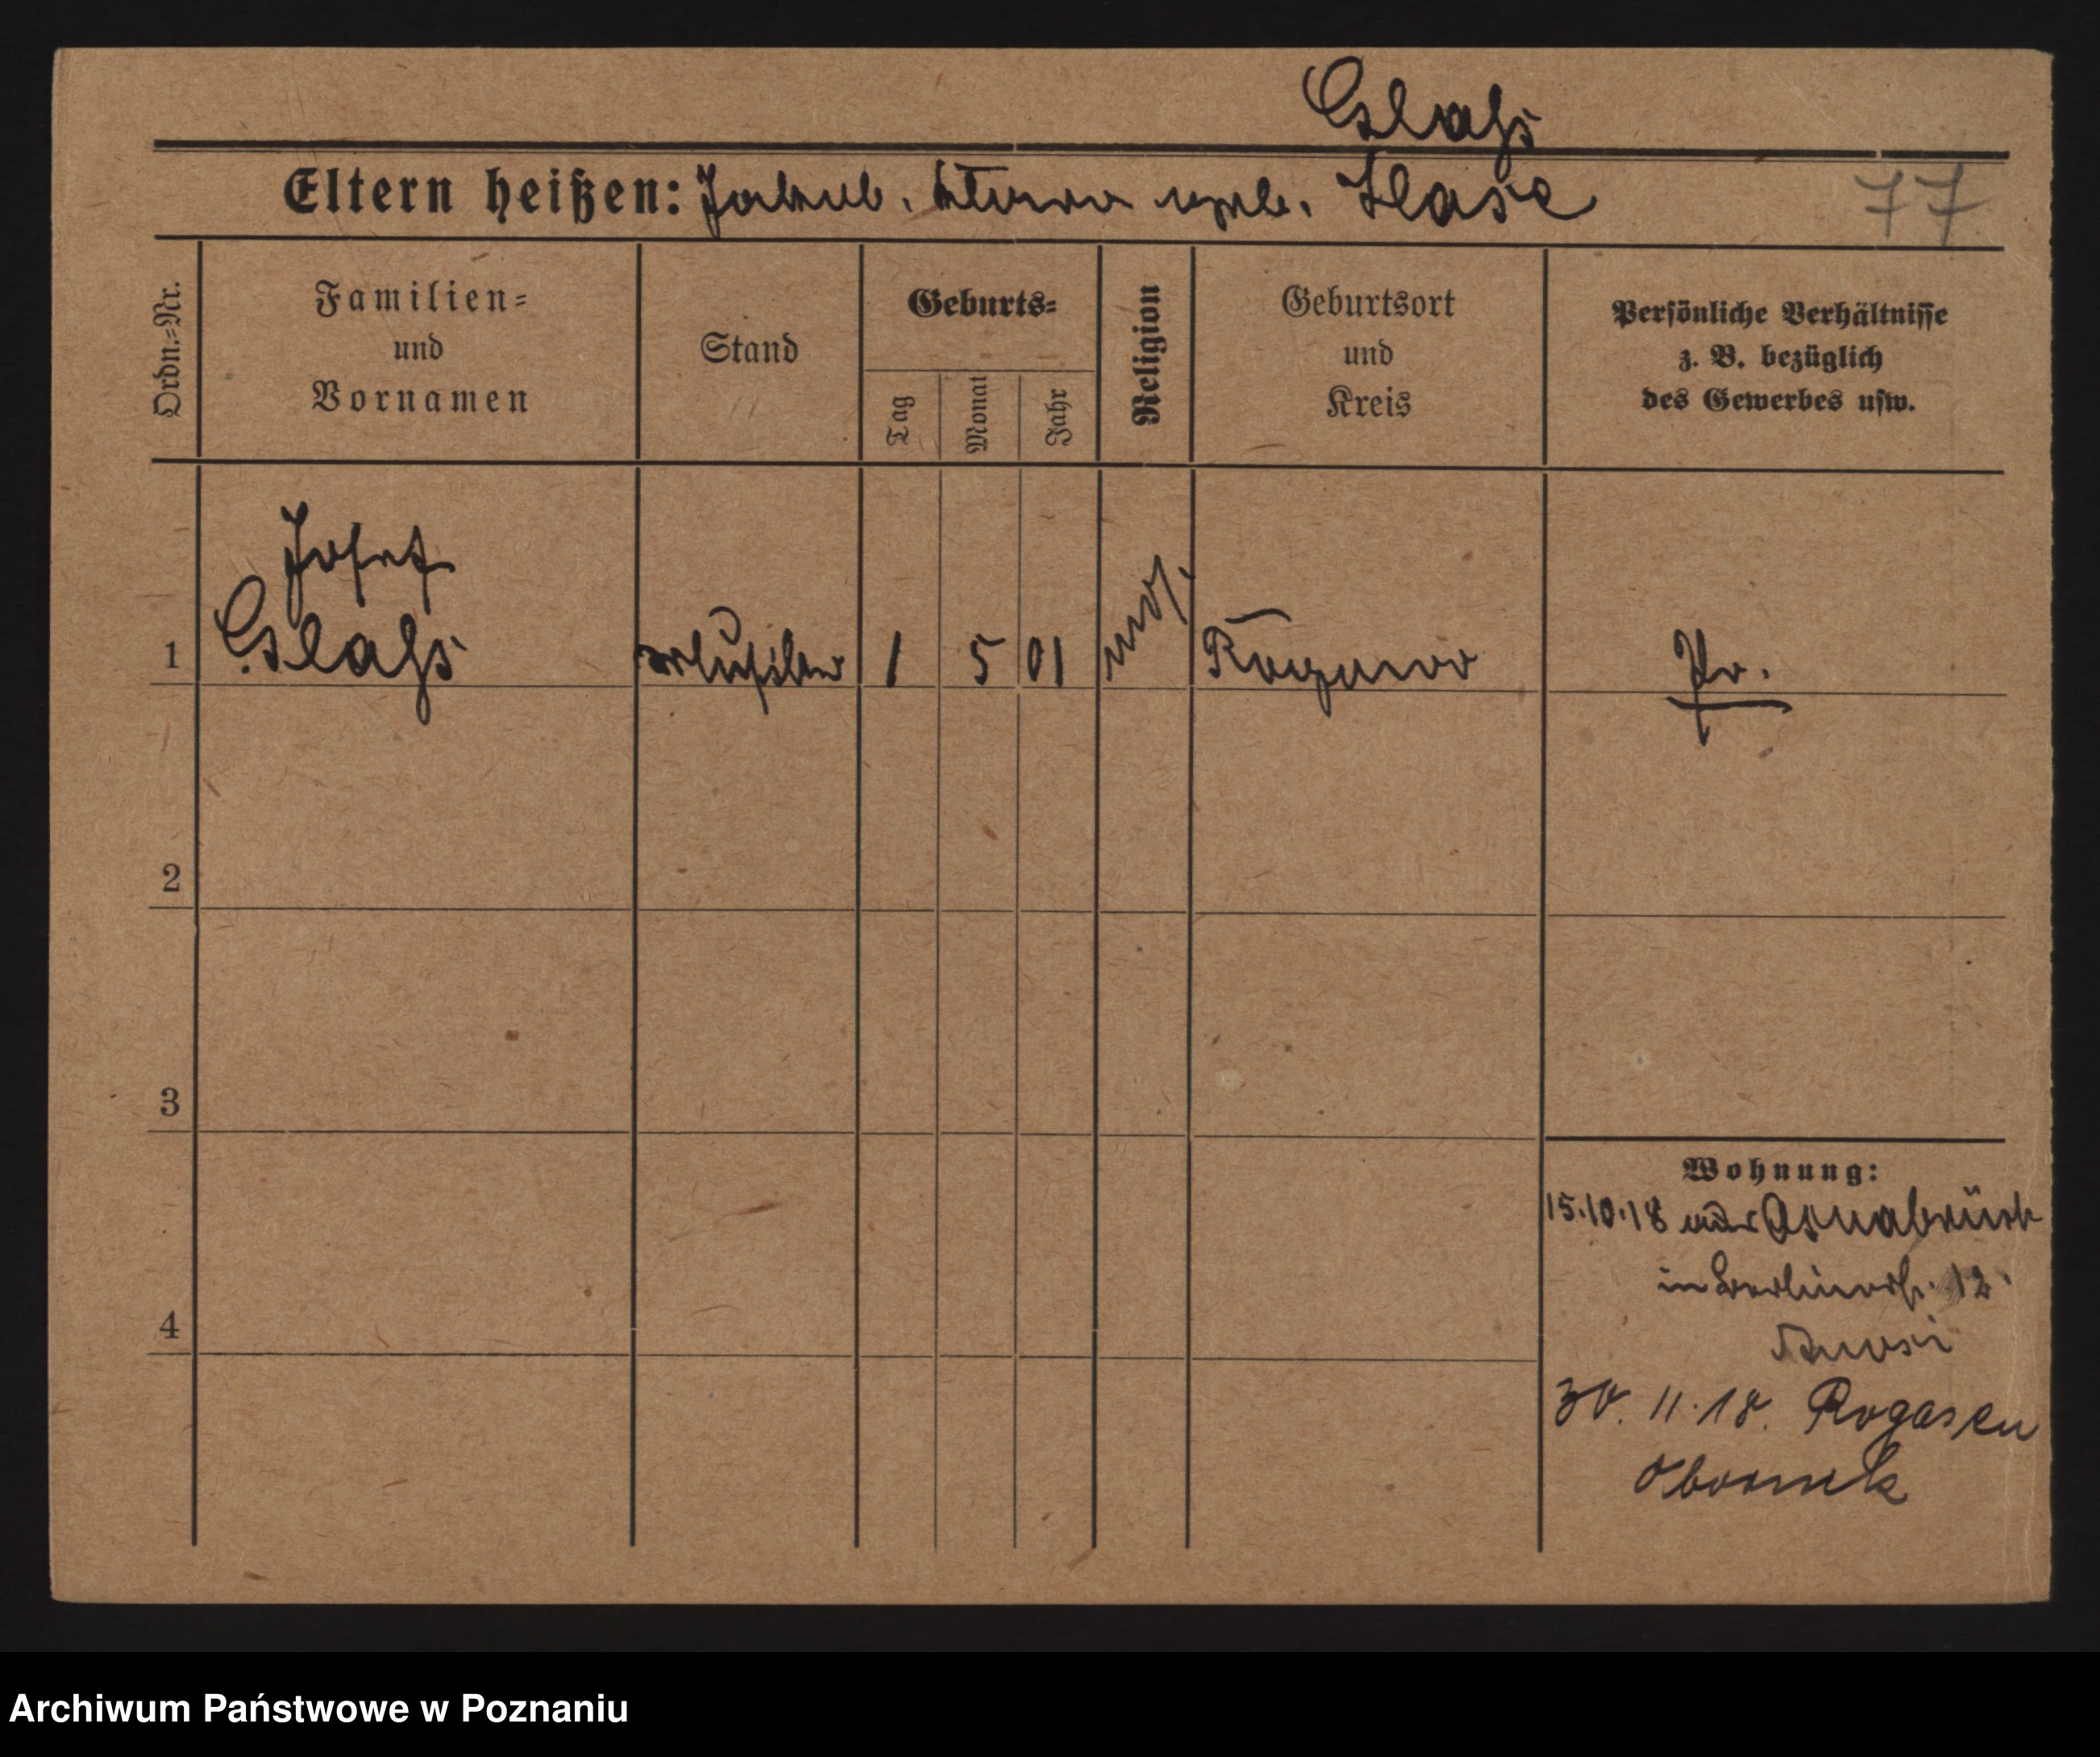 Glaß
Eltern heißen: Jakob. geb. Hase
77
Ordn.=Nr.
Familien=
und
Vornamen
Stand
Geburts=
Tag
Monat
Jahr
Religion
Geburtsort
und
Kreis
Persönliche Verhältnisse
z. B. bezüglich
des Gewerbes usw.
Josef
1 Glaß 1 5 01 mos. Pr.
2
3
4
Wohnung:
15.10.18 aus Osnabrück
in Berlinerstr. 12
30. 11. 18. Rogasen
Obornik
Archiwum Państwowe w Poznaniu